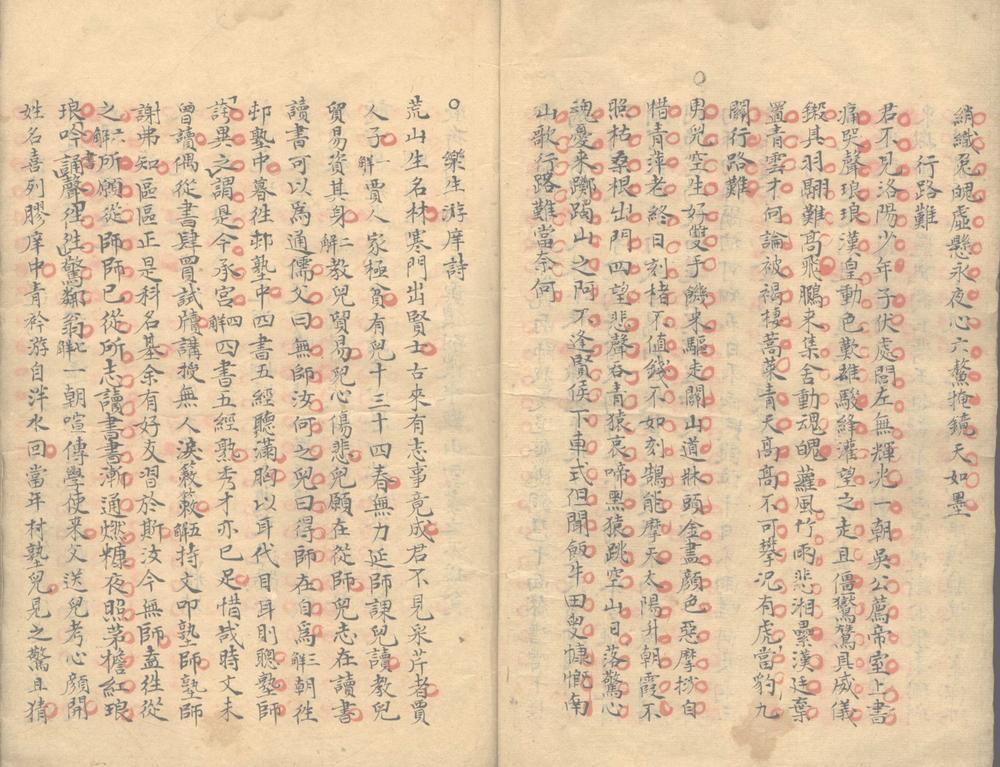 綃纖兎魄虛懸永夜心六鰲掩鏡天如墨
行路難
君不見洛陽少年子伏處閭左無輝光一朝吳公薦帝室上書
痛哭聲琅琅漢皇動色歎雄駿絳灌望之走且僵鸑鷟具威儀
鎩其羽翮難高飛鵬來集舍動魂魄蘿風竹雨悲湘纍漢廷棄
置青雲才何論被褐棲蒿萊青天高高不可攀況有虎當豹九
關行路難
男兒空生好雙手饑來驅走關山道牀頭金盡顏色惡摩挲自
惜青萍老終日刻楮不值錢不如刻鵠能摩天太陽升朝霞不
照枯桑根出門四望悲聲吞青猿哀啼黑猿跳空山日落驚心
魂憂來躑躅山之阿不逢賢侯下車式但聞飯牛田叟慷慨南
山歌行路難當奈何
樂生游庠詩
荒山生名材寒門出賢士古來有志事竟成君不見泉芹者賈
人子一解賈人家極貧有兒十三四春無力延師課兒讀教兒
貿易資其身二解教兒貿易兒心傷悲兒願在從師兒志在讀書
讀書可以爲通儒父曰無師汝何之兒曰得師在自爲三解朝徃
邨塾中暮徃邨塾中四書五經聽滿胸以耳代目耳則聰塾師
詫異之謂是今承宮四解四書五經熟秀才亦已足惜哉時文未
曾讀偶從書肆買試牘講授無人淚簌簌五解持文叩塾師塾師
謝弗知區區正是科名基余有好友習於斯汝今無師盍徃從
之六解所願從師師已從所志讀書書漸通燃糠夜照茅檐紅琅
琅吟誦聲徃徃驚鄰翁七解一朝喧傳學使來父送兒考心顏開
姓名喜列膠庠中青衿游自泮水回當年村塾兒見之驚且猜